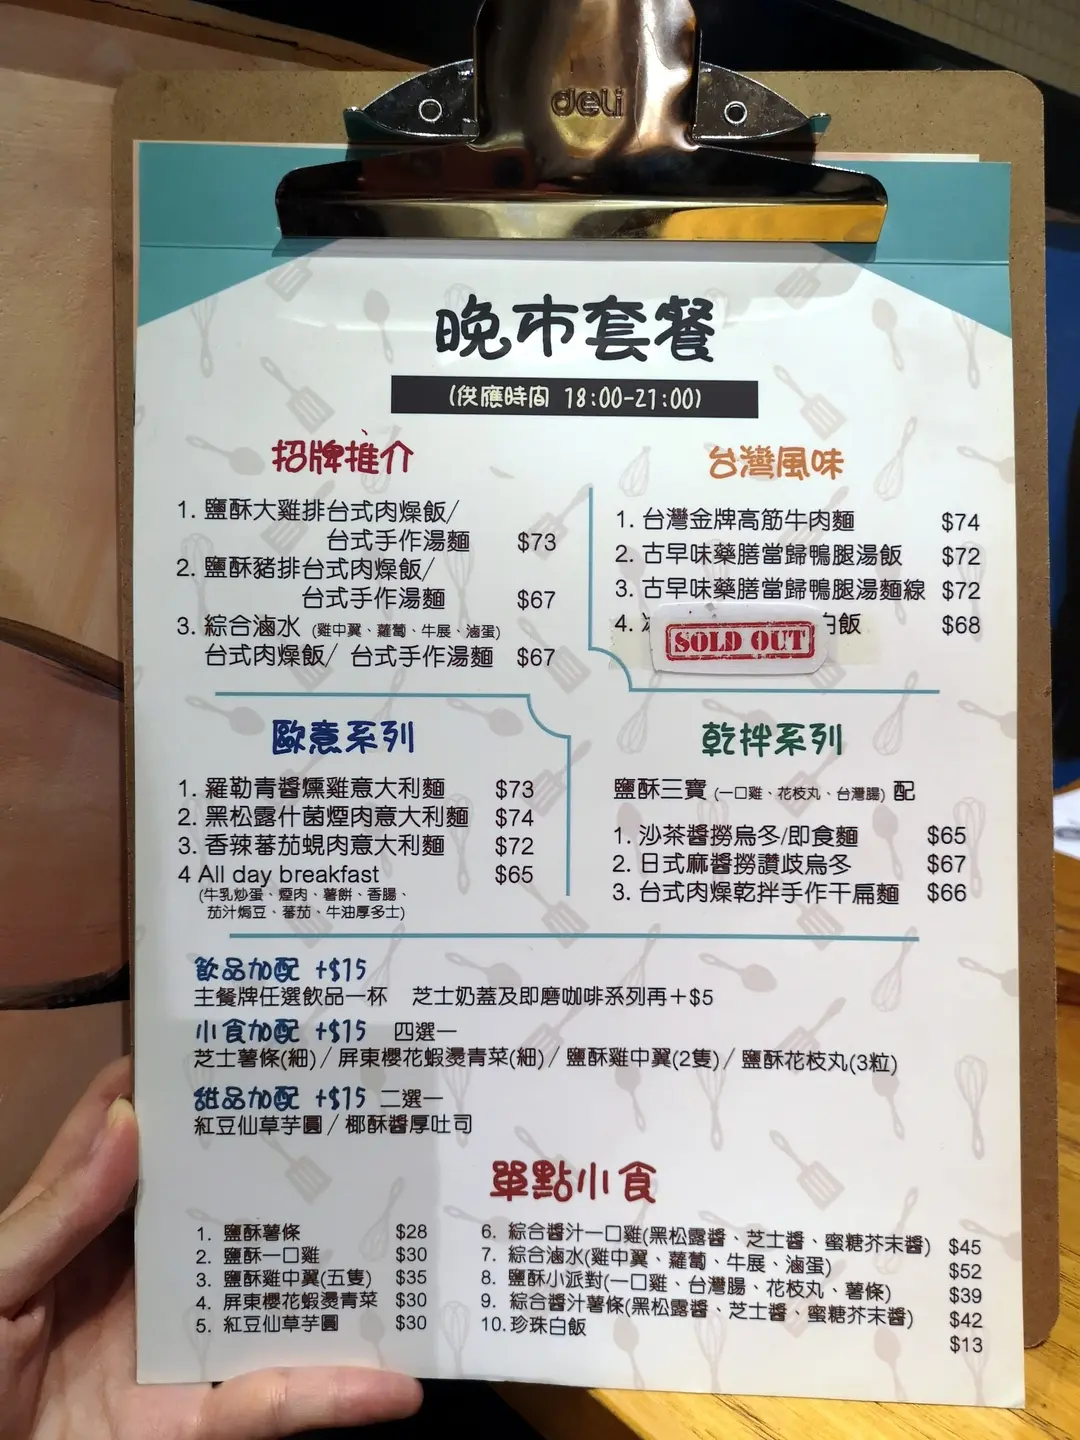 deli
晚市套餐
(供應時間 18:00-21:00)
招牌推介
1. 鹽酥大雞排台式肉燥飯/
台式手作湯麵 $73
2. 鹽酥豬排台式肉燥飯/
台式手作湯麵 $67
3. 綜合滷水 (雞中翼、蘿蔔、牛展、滷蛋)
台式肉燥飯/ 台式手作湯麵 $67
台灣風味
1. 台灣金牌高筋牛肉麵 $74
2. 古早味藥膳當歸鴨腿湯飯 $72
3. 古早味藥膳當歸鴨腿湯麵線 $72
4. SOLD OUT 白飯 $68
歐意系列
1. 羅勒青醬燻雞意大利麵 $73
2. 黑松露什菌煙肉意大利麵 $74
3. 香辣蕃茄蜆肉意大利麵 $72
4 All day breakfast $65
(牛乳炒蛋、煙肉、薯餅、香腸、
茄汁焗豆、蕃茄、牛油厚多士)
乾拌系列
鹽酥三寶 (一口雞、花枝丸、台灣腸) 配
1. 沙茶醬撈烏冬/即食麵 $65
2. 日式麻醬撈讚歧烏冬 $67
3. 台式肉燥乾拌手作干扁麵 $66
飲品加配 +$15
主餐牌任選飲品一杯 芝士奶蓋及即磨咖啡系列再+$5
小食加配 +$15 四選一
芝士薯條(細)/ 屏東櫻花蝦燙青菜(細)/ 鹽酥雞中翼(2隻)/ 鹽酥花枝丸(3粒)
甜品加配 +$15 二選一
紅豆仙草芋圓 / 椰酥醬厚吐司
單點小食
1. 鹽酥薯條 $28
2. 鹽酥一口雞 $30
3. 鹽酥雞中翼(五隻) $35
4. 屏東櫻花蝦燙青菜 $30
5. 紅豆仙草芋圓 $30
6. 綜合醬汁一口雞(黑松露醬、芝士醬、蜜糖芥末醬) $45
7. 綜合滷水(雞中翼、蘿蔔、牛展、滷蛋) $52
8. 鹽酥小派對(一口雞、台灣腸、花枝丸、薯條) $39
9. 綜合醬汁薯條(黑松露醬、芝士醬、蜜糖芥末醬) $42
10. 珍珠白飯 $13